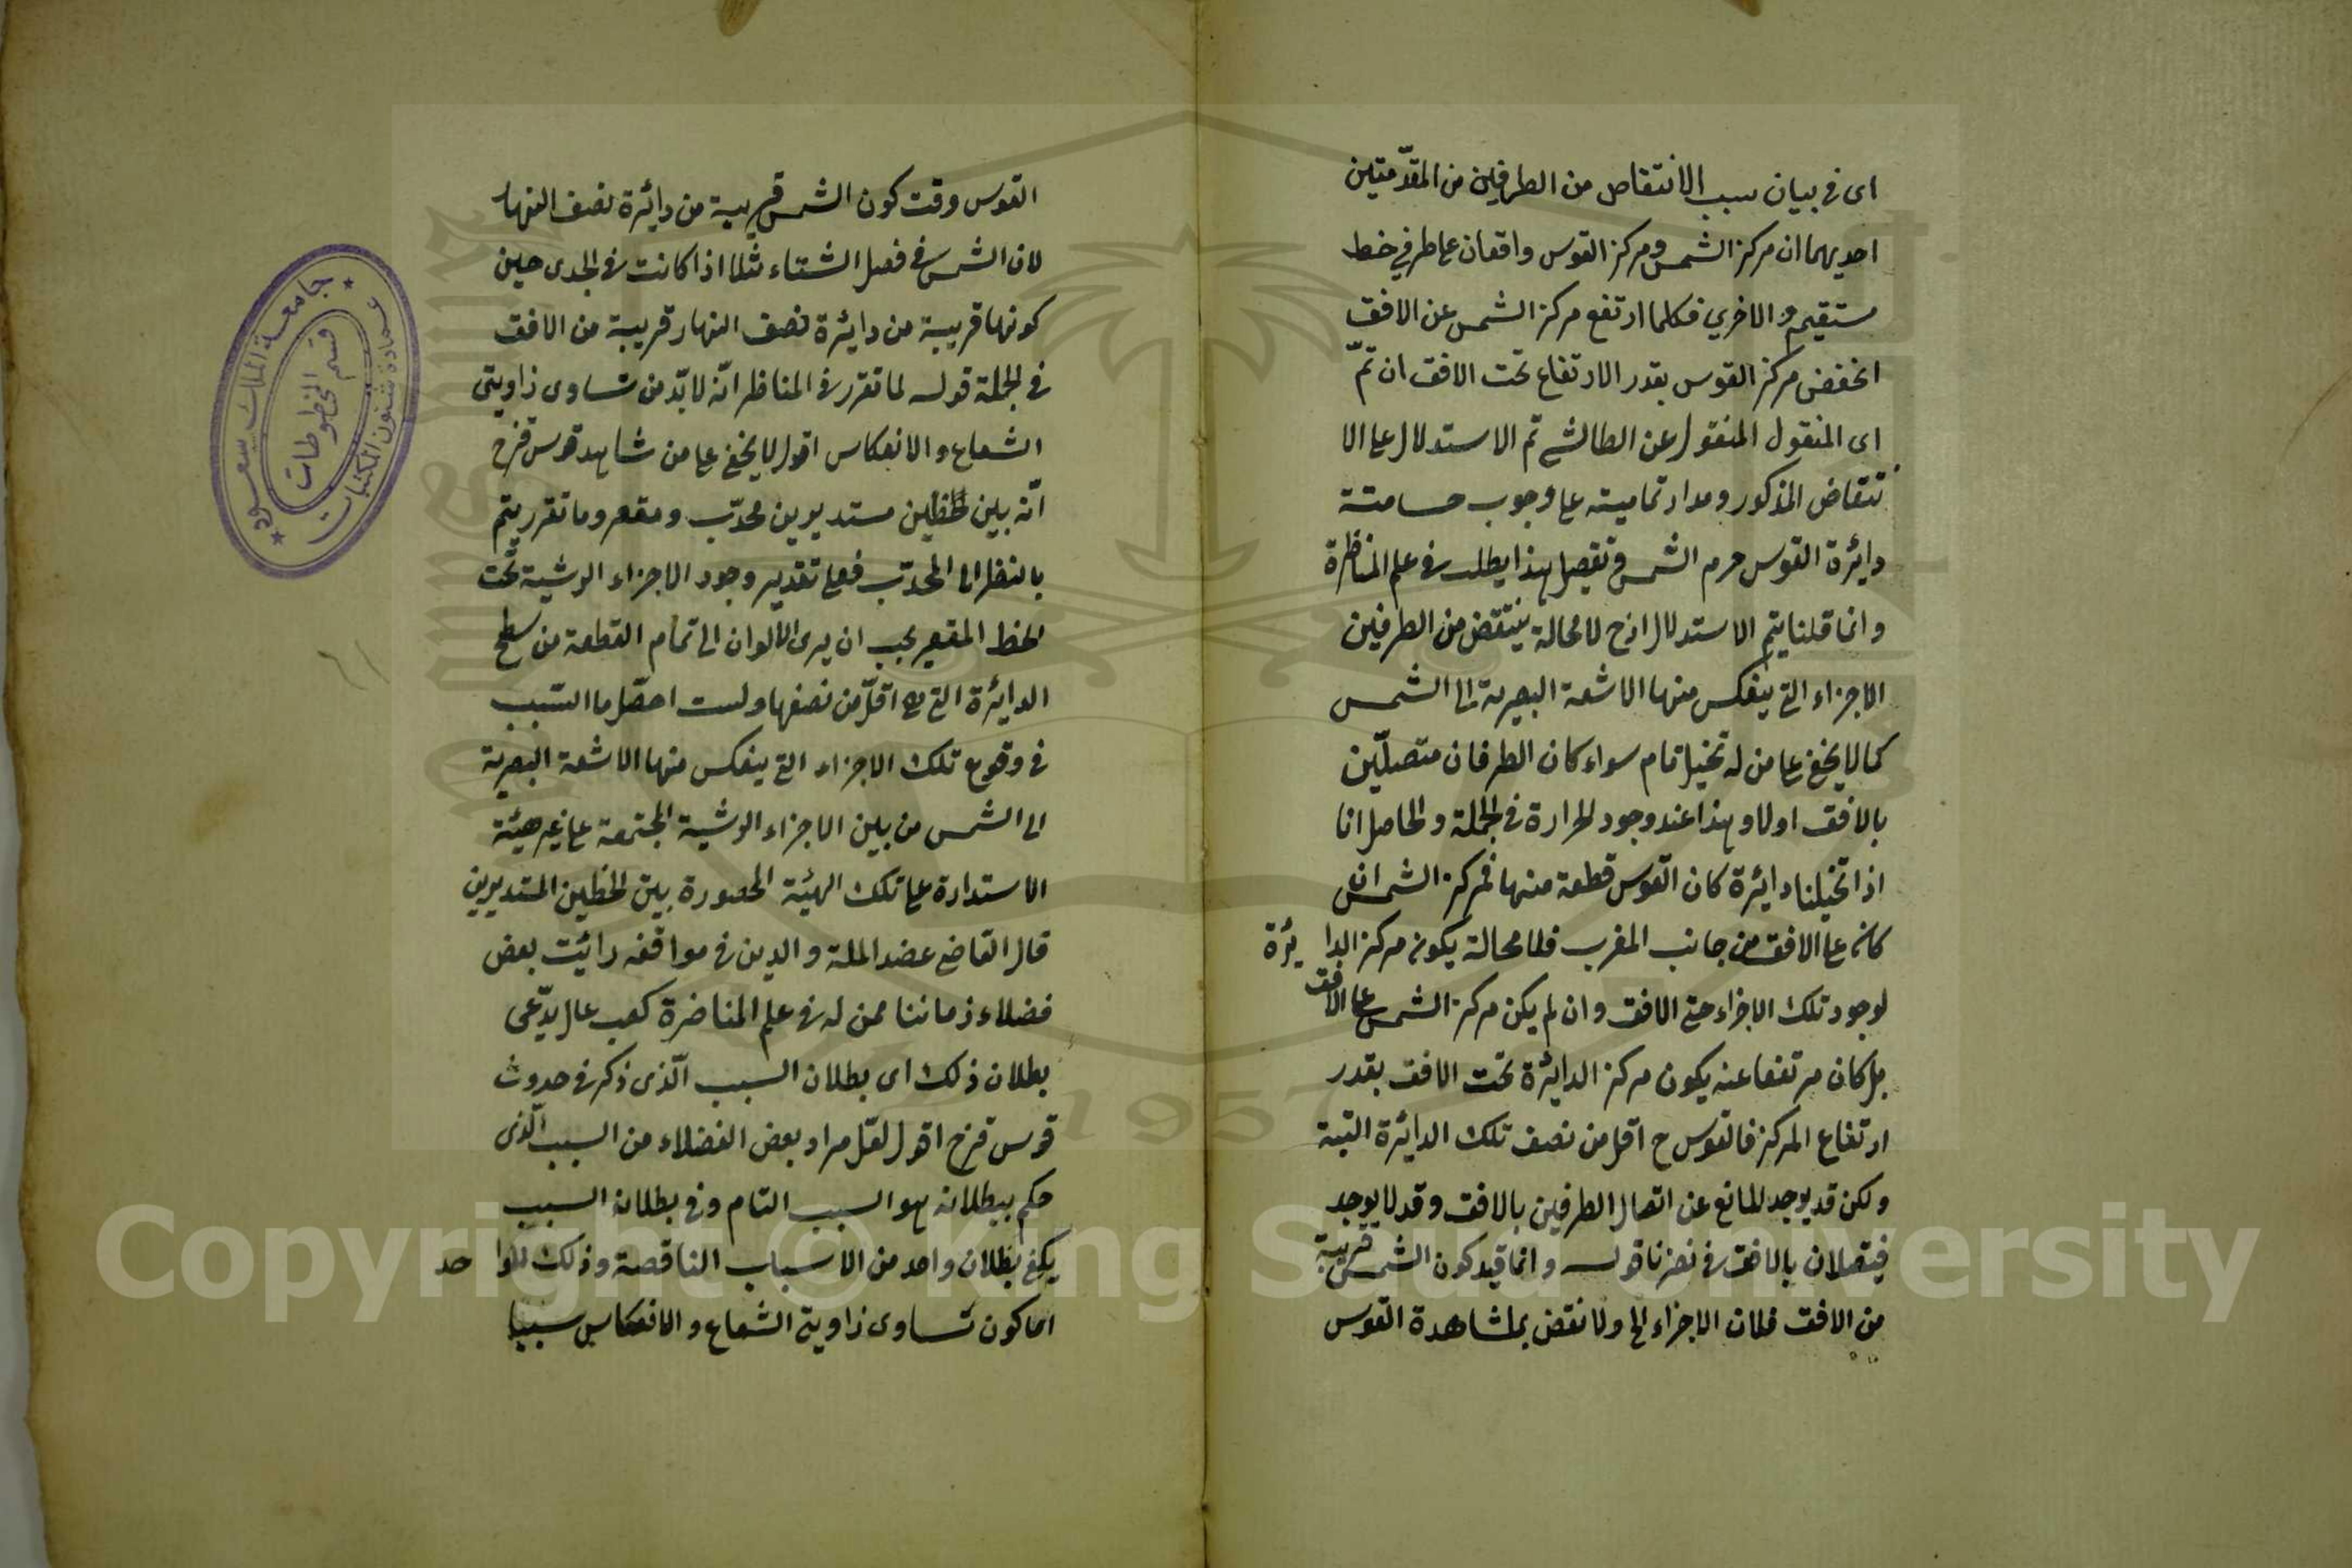 اى فى بيان سبب الانتقاص من الطرفين من المقدّمتين
احديهما ان مركز الشمس ومركز القوس واقعان على طرفي خط
مستقيم والاخري فكلما ارتفع مركز الشمس عن الافق
انخفض مركز القوس بقدر الارتفاع تحت الافق ان تمّ
اى المنقول المنقول عن الطالشى تم الاستدلال على الا
نتقاض المذكور ومدار تماميته على وجوب مسامتة
دائرة القوس جرم الشمس وتفصيل هذا يطلب فى علم المناظرة
وانما قلنا يتم الاستدلال اذ ح لا محالة ينتقض من الطرفين
الاجزاء التى ينعكس منها الاشعة البصرية الى الشمس
كما لا يخفى على من له تخيل تام سواء كان الطرفان متصلّين
بالافق اولا وهذا عند وجود الحرارة فى الجملة والحاصل انا
اذا تخيلنا دائرة كان القوس قطعة منها فمركز الشمس ان
كان على الافق من جانب المغرب فلا محالة يكون مركز الدا ئرة
لوجود تلك الاجزاء حتى الافق وان لم يكن مركز الشمس على الافق
بل كان مرتفعا عنه يكون مركز الدائرة تحت الافق بقدر
ارتفاع المركز فالقوس ح اقل من نصف تلك الدائرة البتة
ولكن قد يوجد المانع عن اتصال الطرفين بالافق وقد لا يوجد
فيتصلان بالافق فى نظرنا قوله وانما قيد كون الشمس قريبة
من الافق فلان الاجزاء الخ ولا نقض بمشاهدة القوس
القوس وقت كون الشمس قريبة من دائرة نصف النهار
لان الشمس فى فصل الشتاء مثلا اذا كانت فى الجدى حين
كونها قريبة من دائرة نصف النهار قريبة من الافق
فى الجملة قوله لما تقرر فى المناظر انّه لا بدّ من تساوى زاويتى
الشعاع والانعكاس اقول لا يخفى على من شاهد قوس قزح
انّه بين الخطين مستديرين محدّب ومقعر وما تقرر يتم
بالنظر الى المحدّب فعلى تقدير وجود الاجزاء الرشية تحت
الخط المقعر يجب ان يرى الالوان الى تمام القطعة من سطح
الدائرة التى هى اقلّ من نصفها ولست احصّل ما السّبب
فى وقوع تلك الاجزاء التى ينعكس منها الاشعة البصرية
الى الشمس من بين الاجزاء الرشية المجتمعة على غير هيئة
الاستدارة على تلك الهيئة المحصورة بين الخطين المستديرين
قال القاضى عضد الملة والدين فى مواقفه رائت بعض
فضلاء زماننا ممن له فى علم المناضرة كعب عال يدّعى
بطلان ذلك اى بطلان السبب الّذى ذكر فى حدوث
قوس قزح اقول لعّل مراد بعض الفضلاء من السبب الّذى
حكم ببطلانه هو السبب التام وفى بطلان السبب
يكفى بطلان واحد من الاسباب الناقصة وذلك الوا حد
اما كون تساوى زاويتى الشعاع والانعكاس سببا
جامعة الملك سعود
عمادة شئون المكتبات
قسم المخطوطات
1957
Copyright © King Saud University